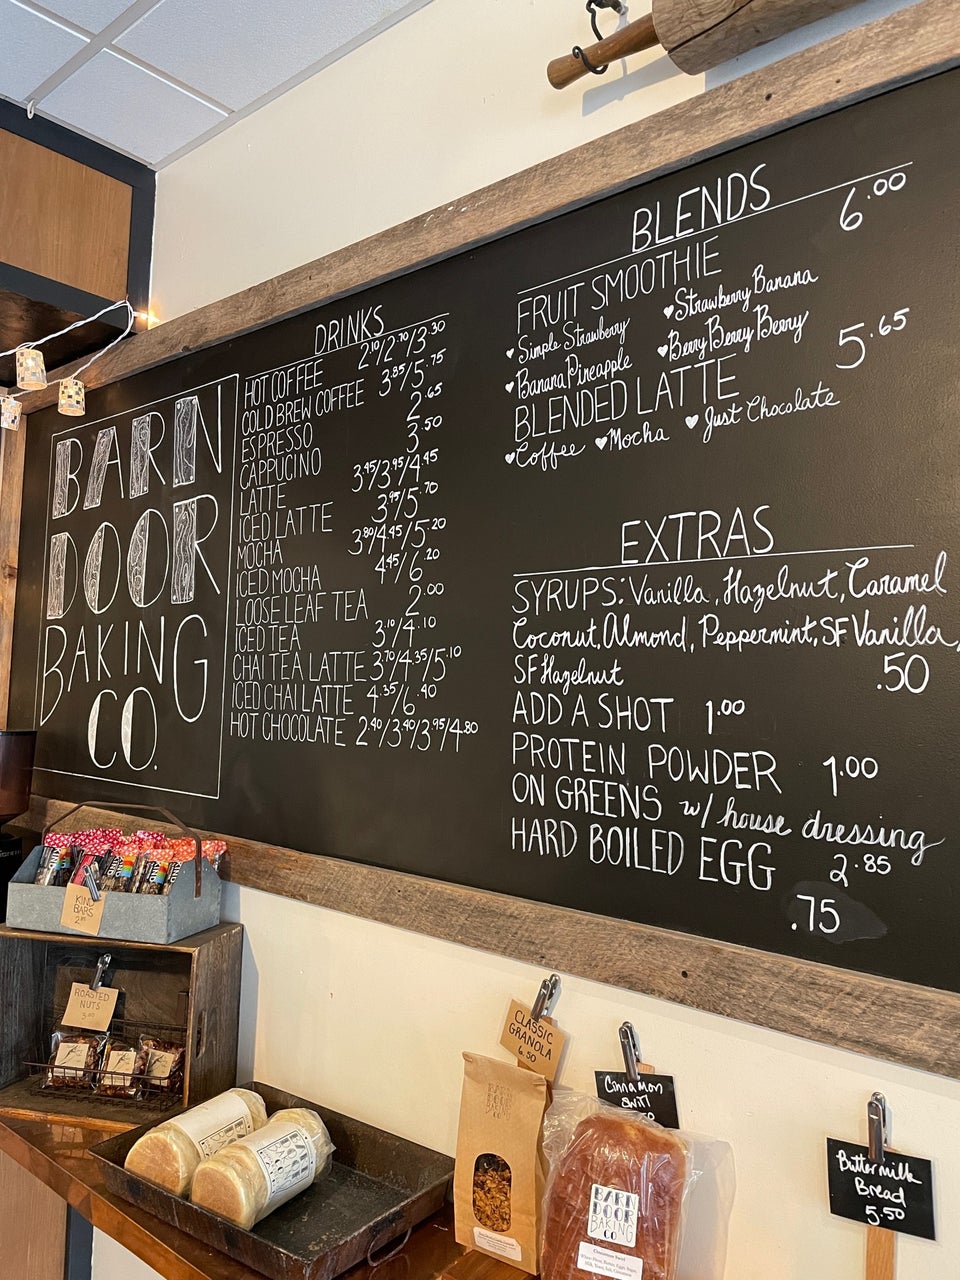 BARN
DOOR
BAKING
CO.
DRINKS
HOT COFFEE 2.10/2.70/3.30
COLD BREW COFFEE 3.85/5.75
ESPRESSO 2.65
CAPPUCINO 3.50
LATTE 3.45/3.95/4.45
ICED LATTE 3.95/5.70
MOCHA 3.80/4.45/5.20
ICED MOCHA 4.45/6.20
LOOSE LEAF TEA 2.00
ICED TEA 3.10/4.10
CHAI TEA LATTE 3.70/4.35/5.10
ICED CHAI LATTE 4.35/6.40
HOT CHOCOLATE 2.40/3.40/3.95/4.80
BLENDS
FRUIT SMOOTHIE 6.00
♥Simple Strawberry ♥Strawberry Banana
♥Banana Pineapple ♥Berry Berry Berry
BLENDED LATTE 5.65
♥Coffee ♥Mocha ♥Just Chocolate
EXTRAS
SYRUPS: Vanilla, Hazelnut, Caramel
Coconut, Almond, Peppermint, SF Vanilla,
SF Hazelnut .50
ADD A SHOT 1.00
PROTEIN POWDER 1.00
ON GREENS w/ house dressing
2.85
HARD BOILED EGG
.75
KIND
BARS
ROASTED
NUTS
CLASSIC
GRANOLA
6.50
Cinnamon
Swirl
BARN
DOOR
BAKING
CO
BARN
DOOR
BAKING
CO
Cinnamon Swirl
Buttermilk
Bread
5.50